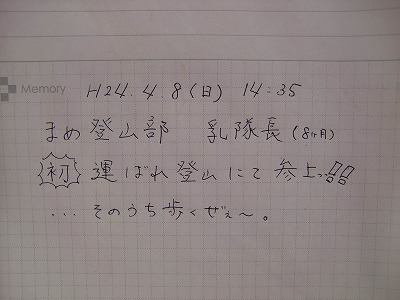 Memory
H24.4.8(日) 14:35
まめ登山部 乳隊長(8ヶ月)
初 運ばれ登山にて参上っ!!!!
...そのうち歩くぜぇ〜。